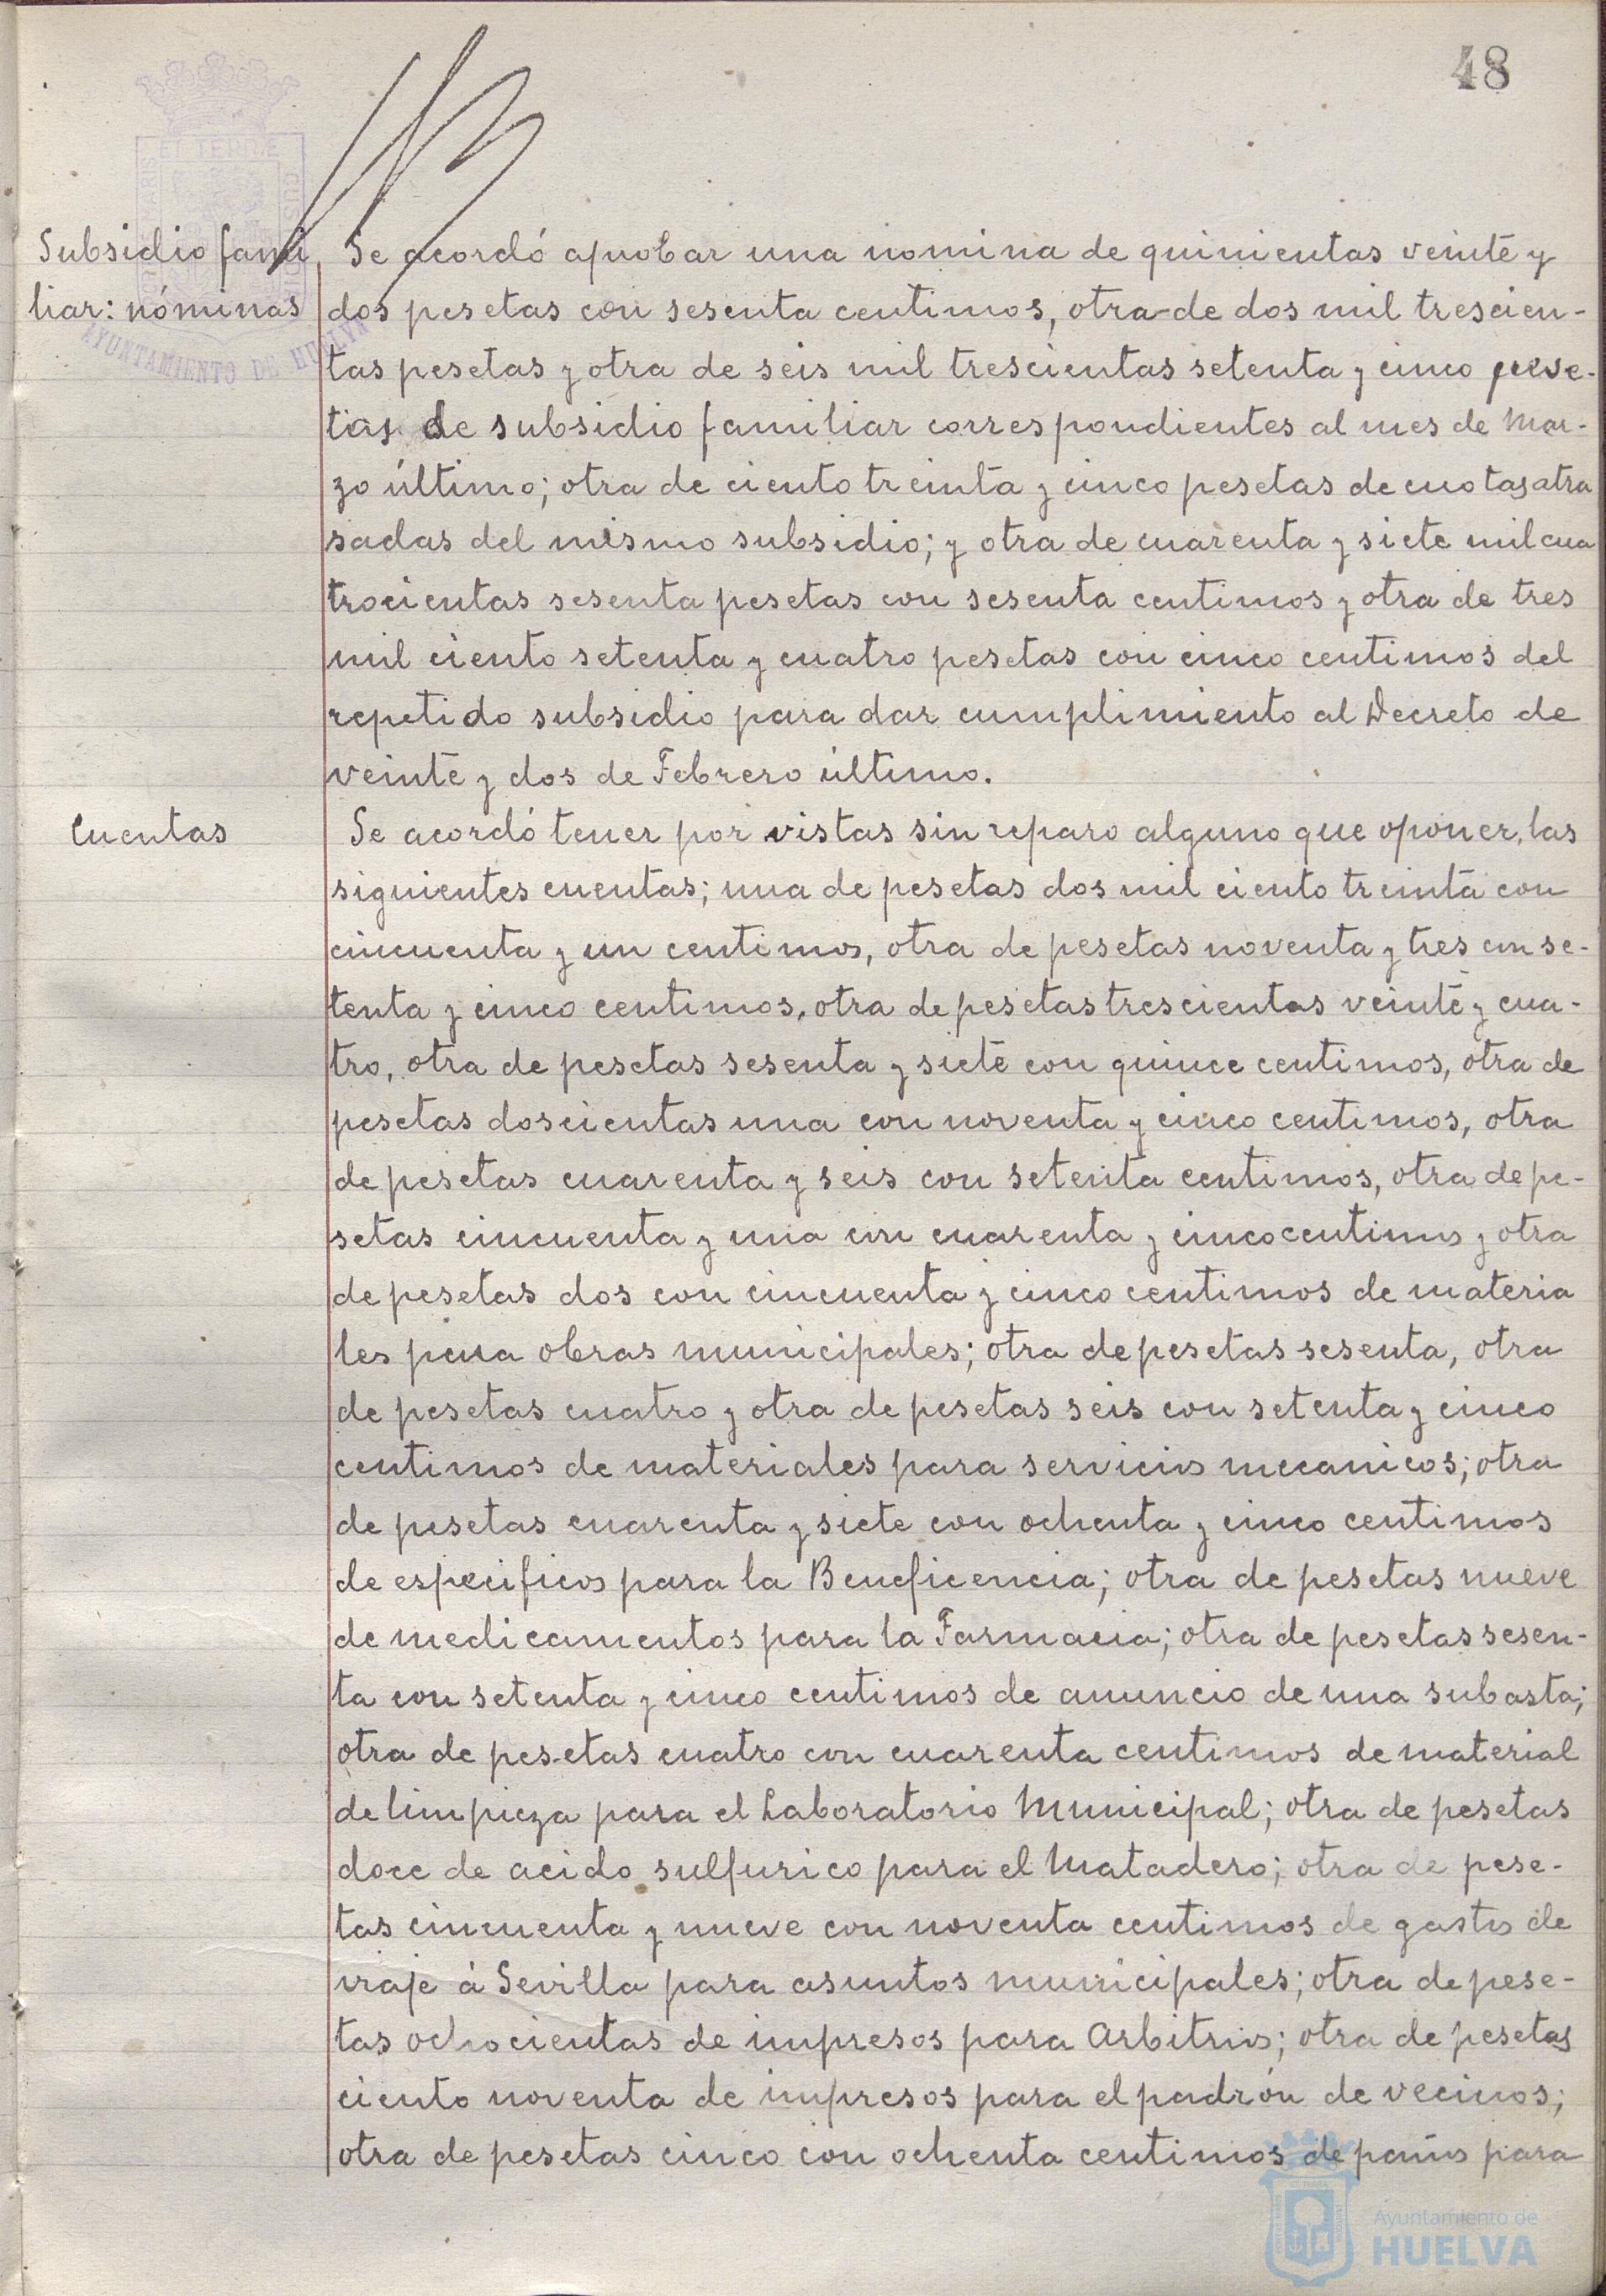 48
Subsidio fami
liar: nóminas
AYUNTAMIENTO DE HUELVA
Se acordó aprobar una nomina de quinientas veinte y
dos pesetas con sesenta centimos, otra de dos mil trescien-
tas pesetas y otra de seis mil trescientas setenta y cinco pese-
tas de subsidio familiar correspondientes al mes de Mar-
zo último; otra de ciento treinta y cinco pesetas de cuotas atra
sadas del mismo subsidio; y otra de cuarenta y siete mil cua
trocientas sesenta pesetas con sesenta centimos y otra de tres
mil ciento setenta y cuatro pesetas con cinco centimos del
repetido subsidio para dar cumplimiento al Decreto de
veinte y dos de Febrero último.
Cuentas
Se acordó tener por vistas sin reparo alguno que oponer, las
siguientes cuentas; una de pesetas dos mil ciento treinta con
cincuenta y un centimos, otra de pesetas noventa y tres con se-
tenta y cinco centimos, otra de pesetas trescientas veinte y cua-
tro, otra de pesetas sesenta y siete con quince centimos, otra de
pesetas doscientas una con noventa y cinco centimos, otra
de pesetas cuarenta y seis con setenta centimos, otra de pe-
setas cincuenta y una con cuarenta y cinco centimos y otra
de pesetas dos con cincuenta y cinco centimos de materia
les para obras municipales; otra de pesetas sesenta, otra
de pesetas cuatro y otra de pesetas seis con setenta y cinco
centimos de materiales para servicios mecanicos; otra
de pesetas cuarenta y siete con ochenta y cinco centimos
de especificos para la Beneficencia; otra de pesetas nueve
de medicamentos para la Farmacia; otra de pesetas sesen-
ta con setenta y cinco centimos de anuncio de una subasta;
otra de pesetas cuatro con cuarenta centimos de material
de limpieza para el Laboratorio Municipal; otra de pesetas
doce de acido sulfurico para el Matadero; otra de pese-
tas cincuenta y nueve con noventa centimos de gastos de
viaje á Sevilla para asuntos municipales; otra de pese-
tas ochocientas de impresos para Arbitrios; otra de pesetas
ciento noventa de impresos para el padrón de vecinos;
otra de pesetas cinco con ochenta centimos de paños para
Ayuntamiento de
HUELVA